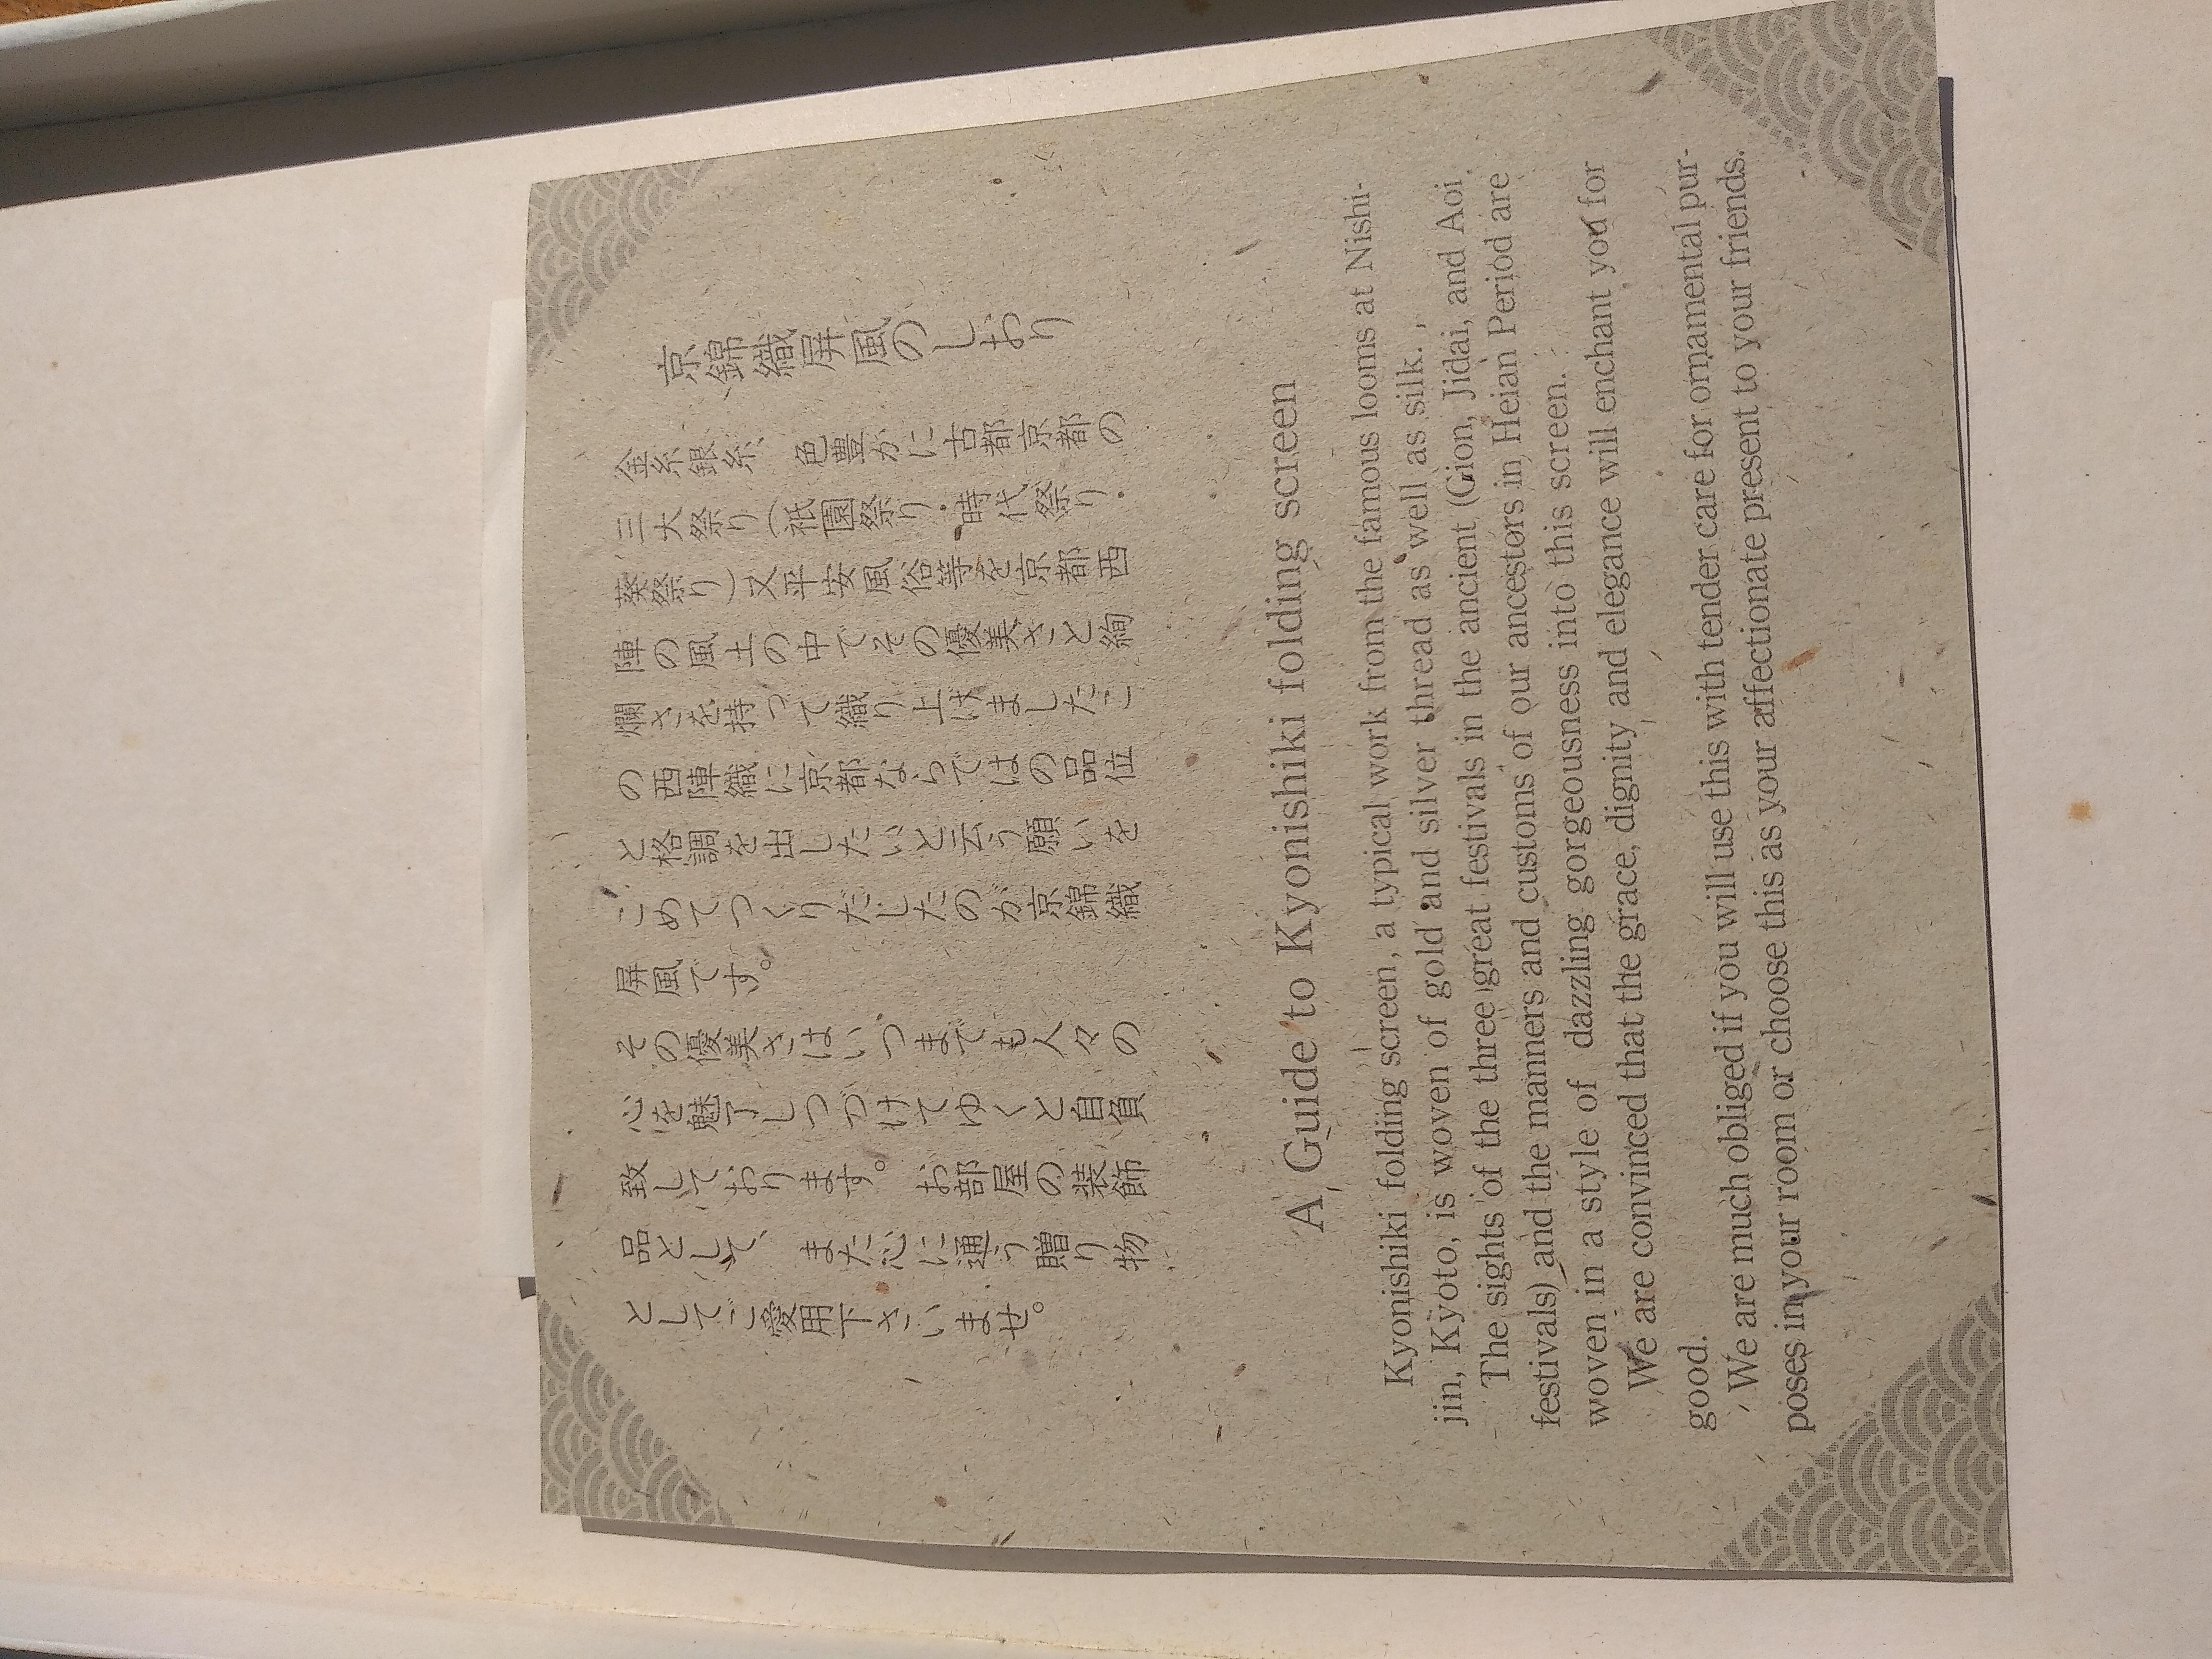 京錦織屏風のしおり
金糸銀糸、色豊かに古都京都の
三大祭り(祇園祭り・時代祭り・
葵祭り)又平安風俗等を京都西
陣の風土の中でその優美さと絢
爛さを持って織り上げましたこ
の西陣織に京都ならではの品位
と格調を出したいと云う願いを
こめてつくりだしたのが京錦織
屏風です。
その優美さはいつまでも人々の
心を魅了しつづけてゆくと自負
致しております。お部屋の装飾
品として、また心に通う贈り物
としてご愛用下さいませ。
A Guide to Kyonishiki folding screen
Kyonishiki folding screen, a typical work from the famous looms at Nishi-
jin, Kyoto, is woven of gold and silver thread as well as silk.
The sights of the three great festivals in the ancient (Gion, Jidai, and Aoi
festivals) and the manners and customs of our ancestors in Heian Period are
woven in a style of dazzling gorgeousness into this screen.
We are convinced that the grace, dignity and elegance will enchant you for
good.
We are much obliged if you will use this with tender care for ornamental pur-
poses in your room or choose this as your affectionate present to your friends.